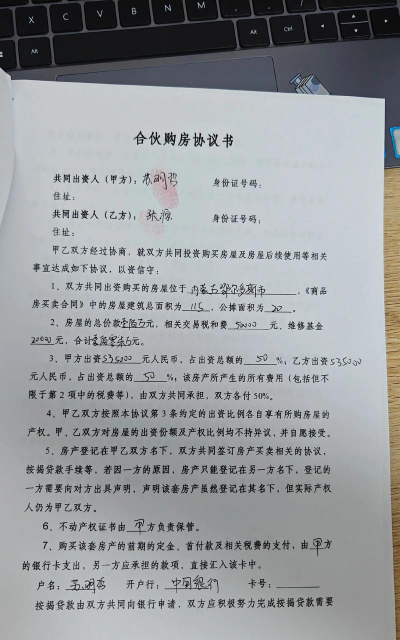 合伙购房协议书
共同出资人（甲方）：苏明哲 身份证号码：
住址：
共同出资人（乙方）：张源 身份证号码：
住址：
甲乙双方经过协商，就双方共同投资购买房屋及房屋后续使用等相关
事宜达成如下协议，以资信守：
1、双方共同出资购买的房屋位于 内蒙古鄂尔多斯市 ，《商品
房买卖合同》中的房屋建筑总面积为 115 ，公摊面积为 20 。
2、房屋的总价款壹佰万元，相关交易税和费 50000 元，维修基金
20000 元，合计壹佰零柒万元。
3、甲方出资535000 元人民币，占出资总额的 50 %；乙方出资535000
元人民币，占出资总额的 50 %；该房产所产生的所有费用（包括但不
限于第2项中的税费等），由双方共同承担，双方各付50%。
4、甲乙双方按照本协议第3条约定的出资比例各自享有所购房屋的
产权。甲、乙双方对房屋的出资份额及产权比例均不持异议，并自愿接受。
5、房产登记在甲乙双方名下，双方共同签订房产买卖相关的协议，
按揭贷款手续等。若因一方的原因，房产只能登记在另一方名下，登记的
一方需要向对方出具声明，声明该套房产虽然登记在其名下，但实际产权
人仍为甲乙双方。
6、不动产权证书由 甲 方负责保管。
7、购买该套房产的前期的定金、首付款及相关税费的支付，由 甲方
的银行卡支出，另一方应承担的款项，直接汇入该卡中。
户名：苏明哲 开户行：中国银行 卡号：
按揭贷款由双方共同向银行申请，双方应积极努力完成按揭贷款需要